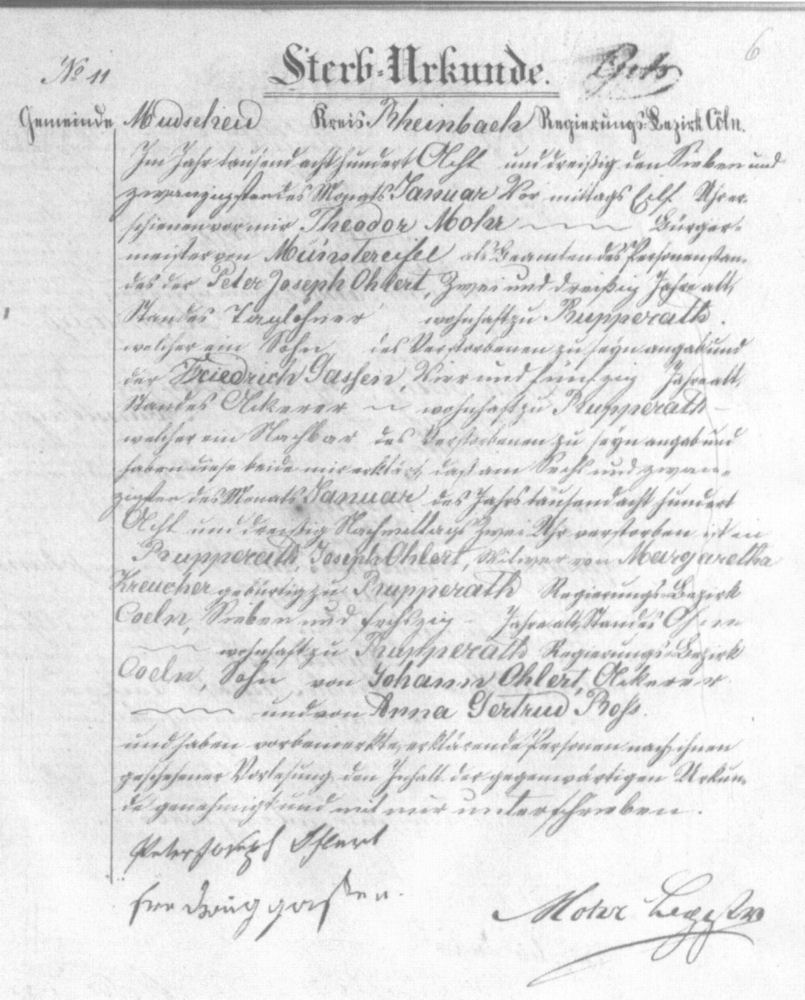 6
No 11 Sterb-Urkunde.
Gemeinde Mudscheid Kreis Rheinbach Regierungs-Bezirk Cöln.
Im Jahr tausend acht hundert Acht und dreißig den Sieben und
zwanzigsten des Monats Januar Vor mittags Eilf Uhr er-
schienen vor mir Theodor Mohr Bürger-
meister von Münstereifel als Beamten des Personenstan-
des der Peter Joseph Ohlert, Zwei und dreißig Jahre alt,
Standes Taglöhner wohnhaft zu Rupperath.
welcher ein Sohn des Verstorbenen zu seyn angab und
der Friedrich Gassen, Vier und fünfzig Jahre alt,
Standes Ackerer wohnhaft zu Rupperath
welcher ein Nachbar des Verstorbenen zu seyn angab und
haben diese beide mir erklärt, daß am Sechs und zwan-
zigsten des Monats Januar des Jahrs tausend acht hundert
Acht und dreißig Nachmittags Zwei Uhr verstorben ist in
Rupperath, Joseph Ohlert, Witwer von Margaretha
Kreucher gebürtig zu Rupperath Regierungs-Bezirk
Coeln, Sieben und sechszig Jahre alt, Standes Ohne
wohnhaft zu Rupperath Regierungs-Bezirk
Coeln, Sohn von Johann Ohlert, Ackerer
und von Anna Gertrud Ross.
und haben vorbemerkte, erklärende Personen nach ihnen
geschehener Vorlesung den Inhalt der gegenwärtigen Urkun-
de genehmigt und mit mir unterschrieben.
Peter Joseph Ohlert
gassen.
Mohr